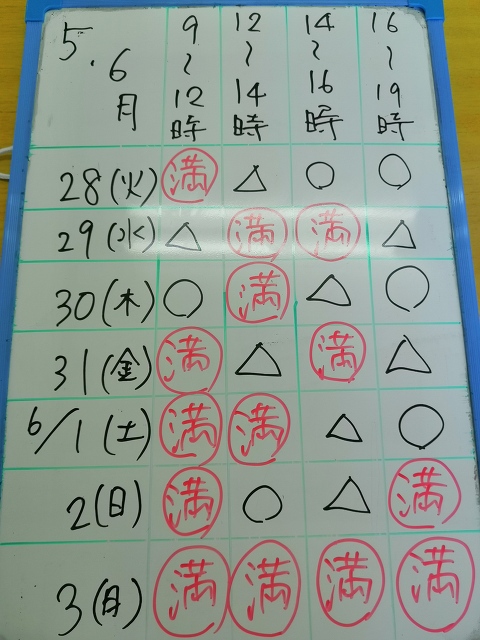 5.6月 9〜12時 12〜14時 14〜16時 16〜19時
28(火) 満 △ ○ ○
29(水) △ 満 満 △
30(木) ○ 満 △ ○
31(金) 満 △ 満 △
6/1(土) 満 満 △ ○
2(日) 満 ○ △ 満
3(月) 満 満 満 満